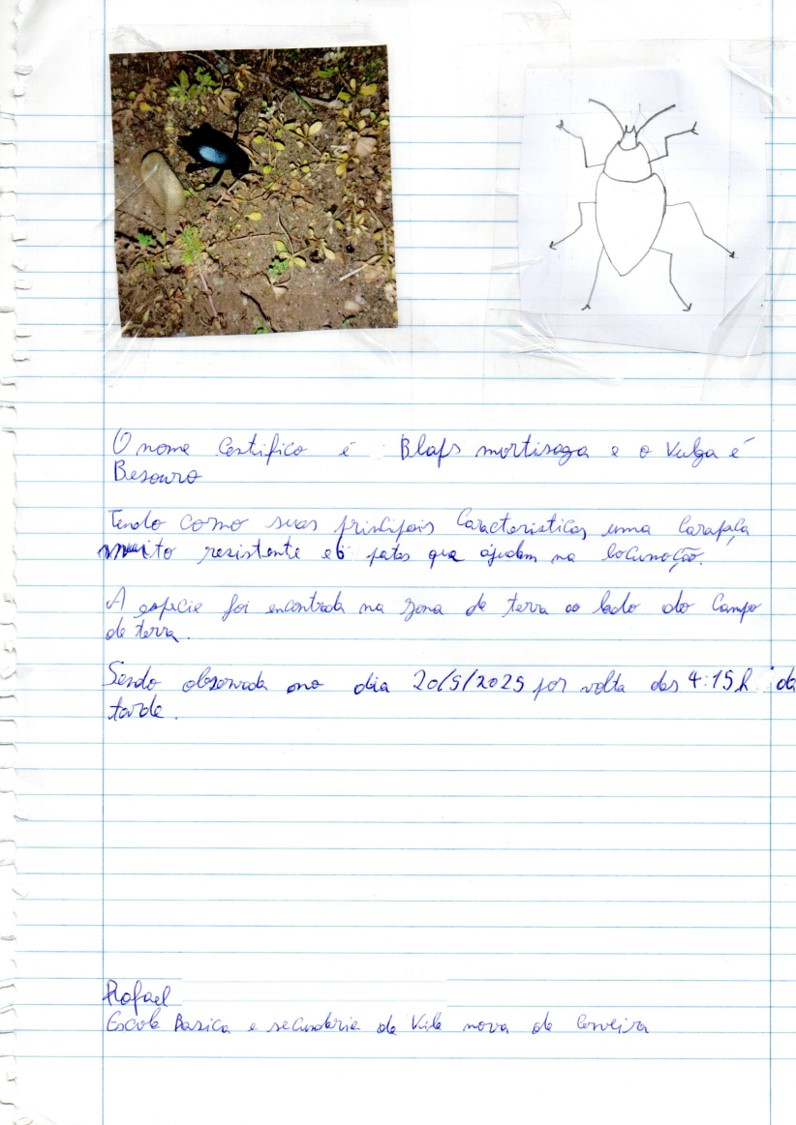 O nome Centifico é Blafs mortisaga e o Vulga é
Besouro
Tendo como suas principais Caracteristicas uma Carapaça
muito resistente e 6 patas que ájudam na locumoção.
A espécie foi encontrada na zona de terra ao lado do Campo
de terra.
Sendo observada no dia 20/5/2025 por volta das 4:15h da
tarde.
Rafael
Escola Basica e secundaria de Vila nova de Cerveira